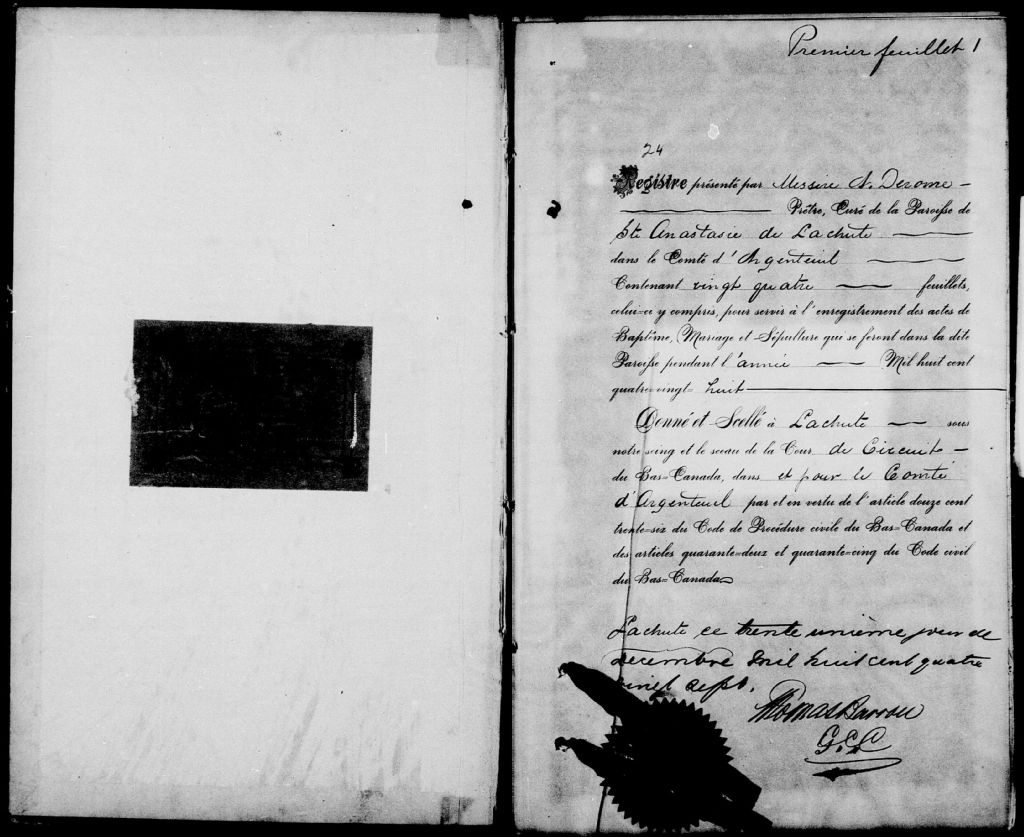 Premier feuillet 1
24
Registre présenté par Messire A. Derome —
Prêtre, Curé de la Paroisse de
Ste Anastasie de Lachute
dans le Comté d'Argenteuil
Contenant vingt quatre feuillets,
celui=ci y compris, pour servir à l'enregistrement des actes de
Baptême, Mariage et Sépulture qui se feront dans la dite
Paroisse pendant l'année Mil huit cent
quatre=vingt= huit
Donné et Scellé à Lachute sous
notre seing et le sceau de la Cour de Circuit —
du Bas=Canada, dans et pour le Comté
d'Argenteuil par et en vertu de l'article douze cent
trente=six du Code de Procédure civile du Bas=Canada et
des articles quarante=deux et quarante=cinq du Code civil
du Bas=Canada
Lachute ce trente unième jour de
decembre mil huit cent quatre
vingt sept.
Thomas Barron
G.C.C.